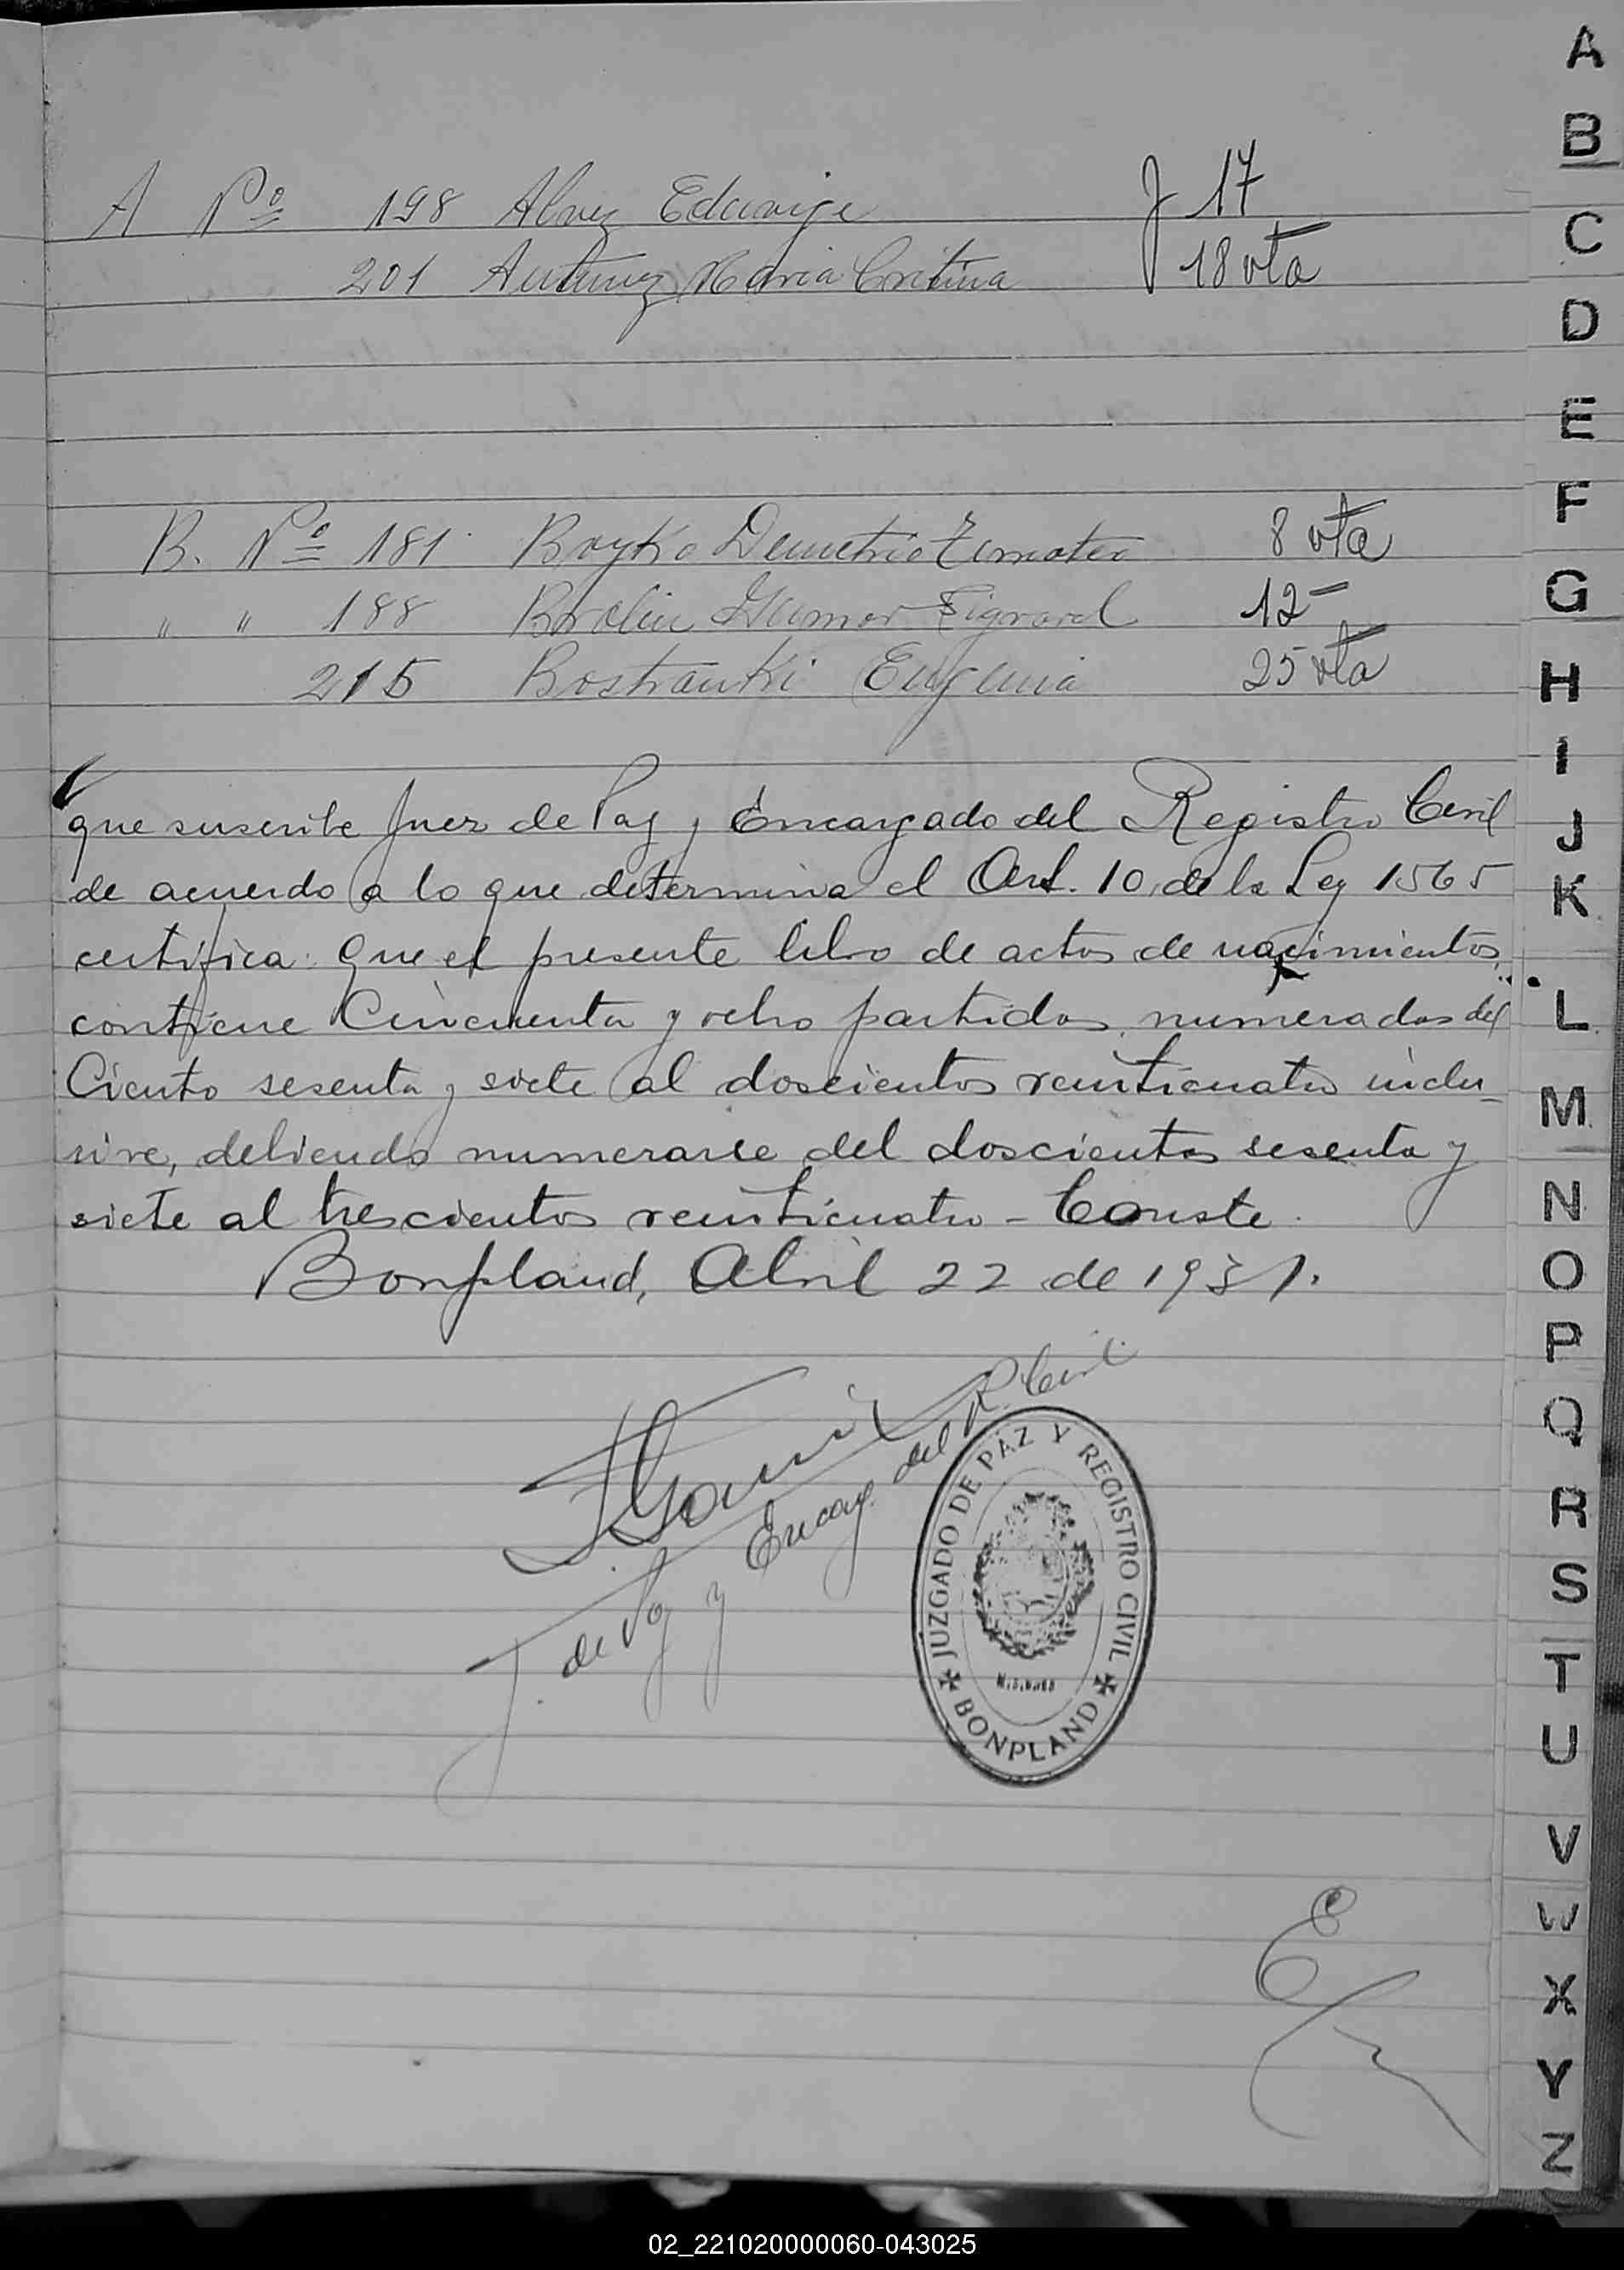 A Nº 198 Alvez Eduvije J 17
201 Antunez Maria Cristina 18 vta
B. Nº 181 Boyko Demetrio Timoteo 8 vta
" " 188 Brolin Gumor Sigvard 12
215 Bostranki Eugenia 25 vta
que suscribe Juez de Paz y Encargado del Registro Civil
de acuerdo a lo que determina el Art. 10 de la Ley 1565
certifica: Que el presente libro de actos de nacimientos
contiene Cincuenta y ocho partidas numeradas del
Ciento sesenta y siete al doscientos veinticuatro inclu-
sive, debiendo numerarse del doscientos sesenta y
siete al trescientos veinticuatro - Conste.
Bonpland, Abril 22 de 1937.
J. de Paz y Encarg. del R. Civil
JUZGADO DE PAZ Y REGISTRO CIVIL
Misiones
BONPLAND
A
B
C
D
E
F
G
H
I
J
K
L
M
N
O
P
Q
R
S
T
U
V
W
X
Y
Z
02_221020000060-043025